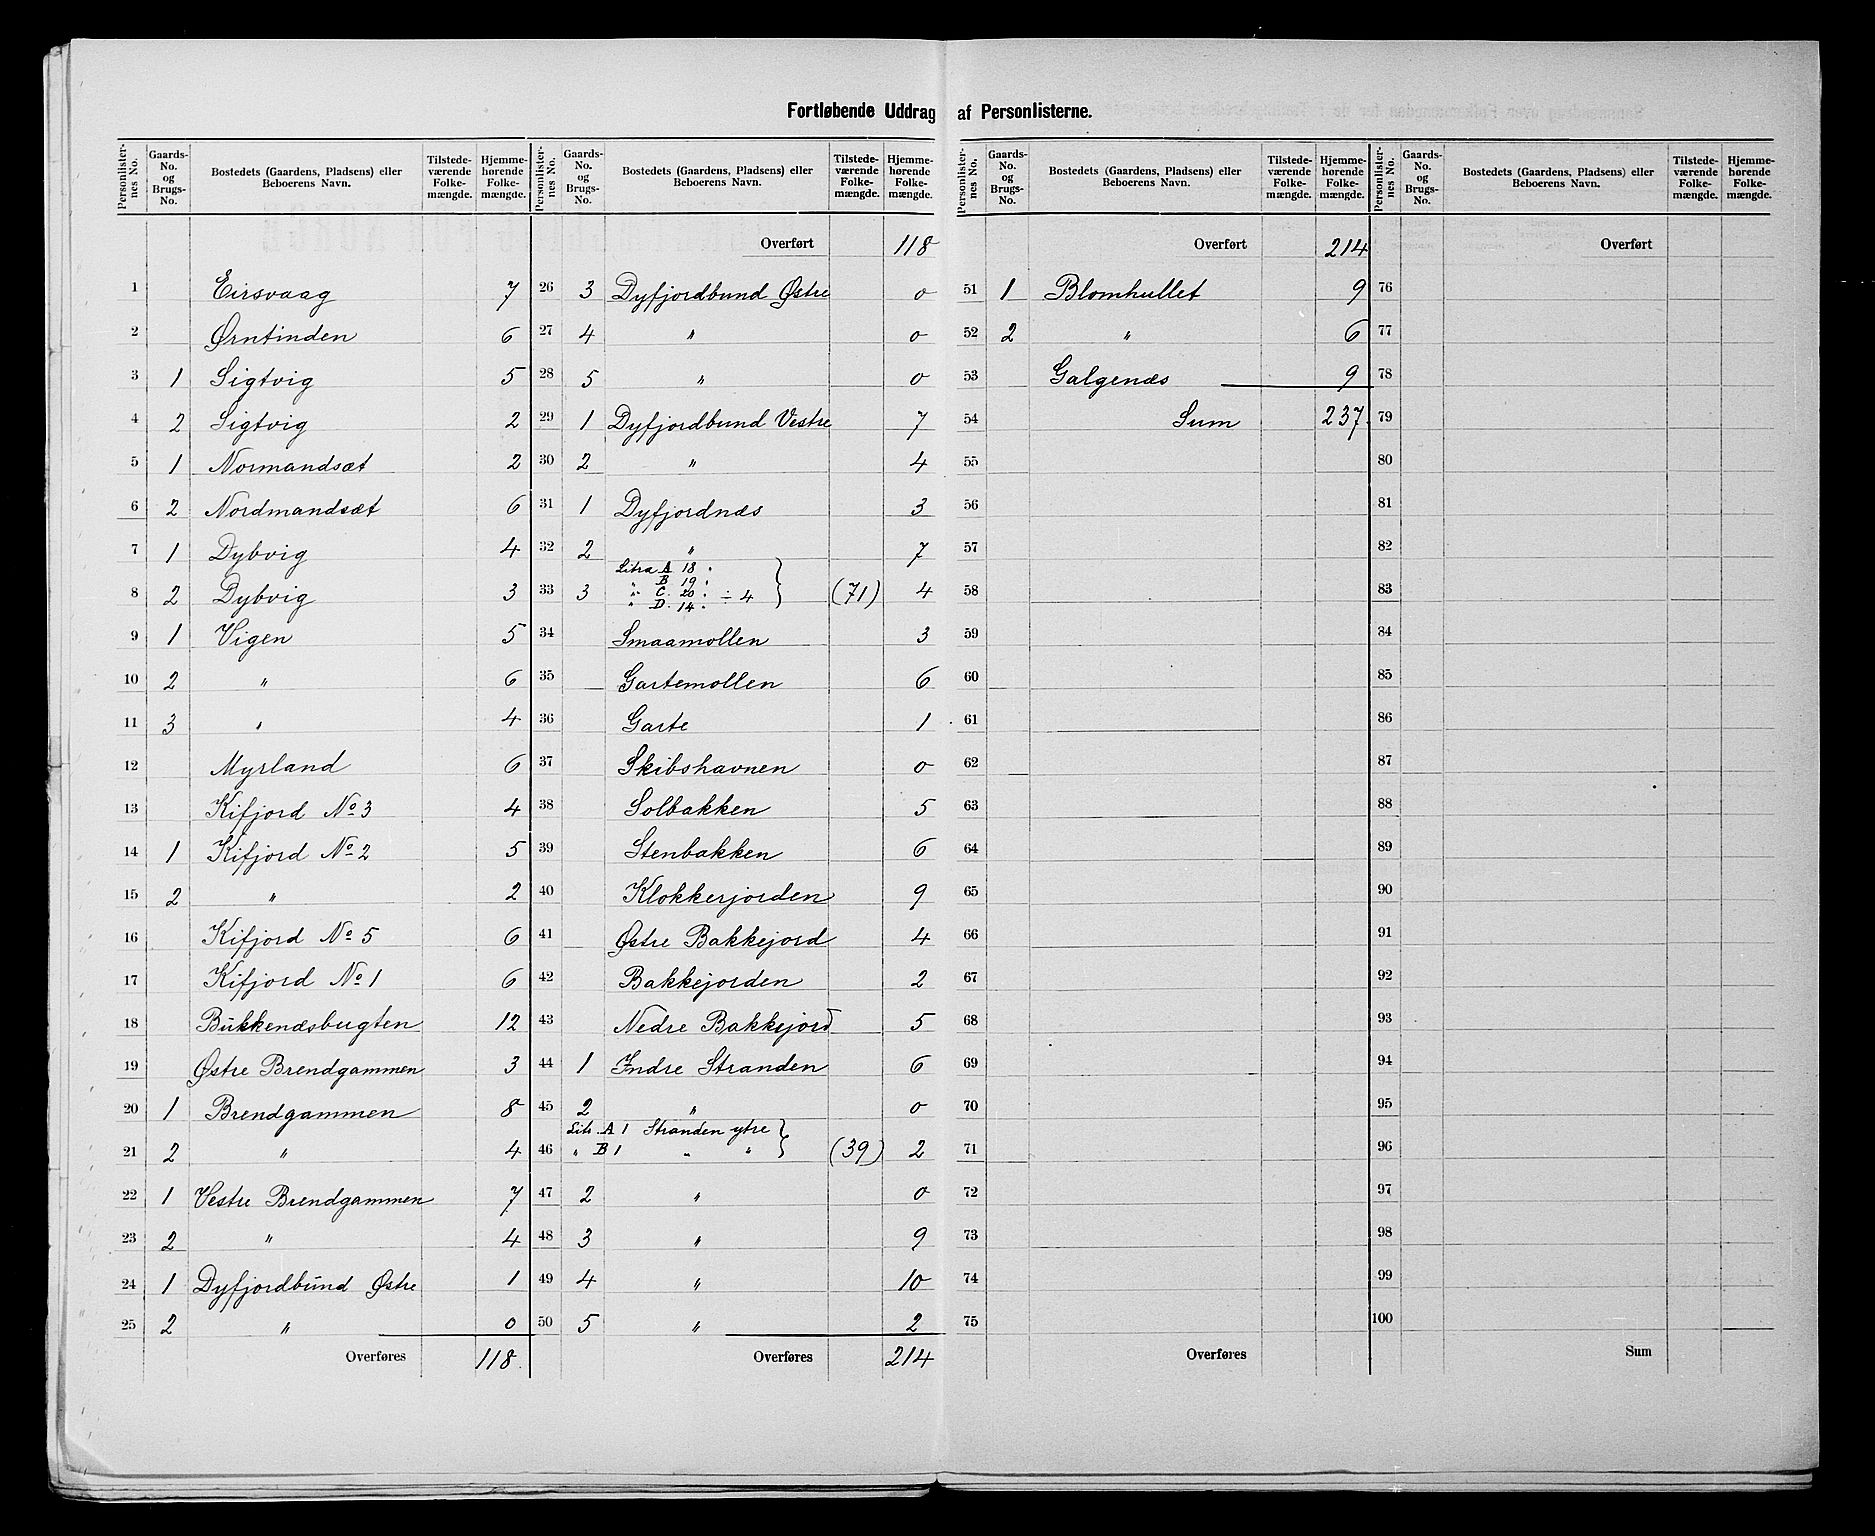 Fortløbende Uddrag af Personlisterne.
Personlister-nes No. | Gaards-No. og Brugs-No. | Bostedets (Gaardens, Pladsens) eller Beboerens Navn. | Tilstede-værende Folke-mængde. | Hjemme-hørende Folke-mængde.
1 Eirsvaag 7
2 Ørntinden 6
3 1 Sigtvig 5
4 2 Sigtvig 2
5 1 Normandsæt 2
6 2 Nordmandsæt 6
7 1 Dybvig 4
8 2 Dybvig 3
9 1 Vigen 5
10 2 " 6
11 3 " 4
12 Myrland 6
13 Kifjord No 3 4
14 1 Kifjord No 2 5
15 2 " 2
16 Kifjord No 5 6
17 Kifjord No 1 6
18 Bukkenæsbugten 12
19 Østre Brendgammen 3
20 1 Brendgammen 8
21 2 " 4
22 1 Vestre Brendgammen 7
23 2 " 4
24 1 Dyfjordbund Østre 1
25 2 " 0
Overføres 118.
Personlister-nes No. | Gaards-No. og Brugs-No. | Bostedets (Gaardens, Pladsens) eller Beboerens Navn. | Tilstede-værende Folke-mængde. | Hjemme-hørende Folke-mængde.
Overført 118
26 3 Dyfjordbund Østre 0
27 4 " 0
28 5 " 0
29 1 Dyfjordbund Vestre 7
30 2 " 4
31 1 Dyfjordnæs 3
32 2 " 7
Litra A 18 "
" B 19 "
33 3 " C. 20 " ÷ 4 (71) 4
" D. 14 "
34 Smaamollen 3
35 Gartemollen 6
36 Garte 1
37 Skibshavnen 0
38 Solbakken 5
39 Stenbakken 6
40 Klokkerjorden 9
41 Østre Bakkejord 4
42 Bakkejorden 2
43 Nedre Bakkejord 5
44 1 Indre Stranden 6
45 2 " 0
Litr. A 1 Stranden ytre
46 " B 1 " " (39) 2
47 2 " 0
48 3 " 9
49 4 " 10
50 5 " 2
Overføres 214
Personlister-nes No. | Gaards-No. og Brugs-No. | Bostedets (Gaardens, Pladsens) eller Beboerens Navn. | Tilstede-værende Folke-mængde. | Hjemme-hørende Folke-mængde.
Overført 214
51 1 Blomhullet 9
52 2 " 6
53 Galgenæs 9
54 Sum 237.
55
56
57
58
59
60
61
62
63
64
65
66
67
68
69
70
71
72
73
74
75
Overføres
Personlister-nes No. | Gaards-No. og Brugs-No. | Bostedets (Gaardens, Pladsens) eller Beboerens Navn. | Tilstede-værende Folke-mængde. | Hjemme-hørende Folke-mængde.
Overført
76
77
78
79
80
81
82
83
84
85
86
87
88
89
90
91
92
93
94
95
96
97
98
99
100
Sum